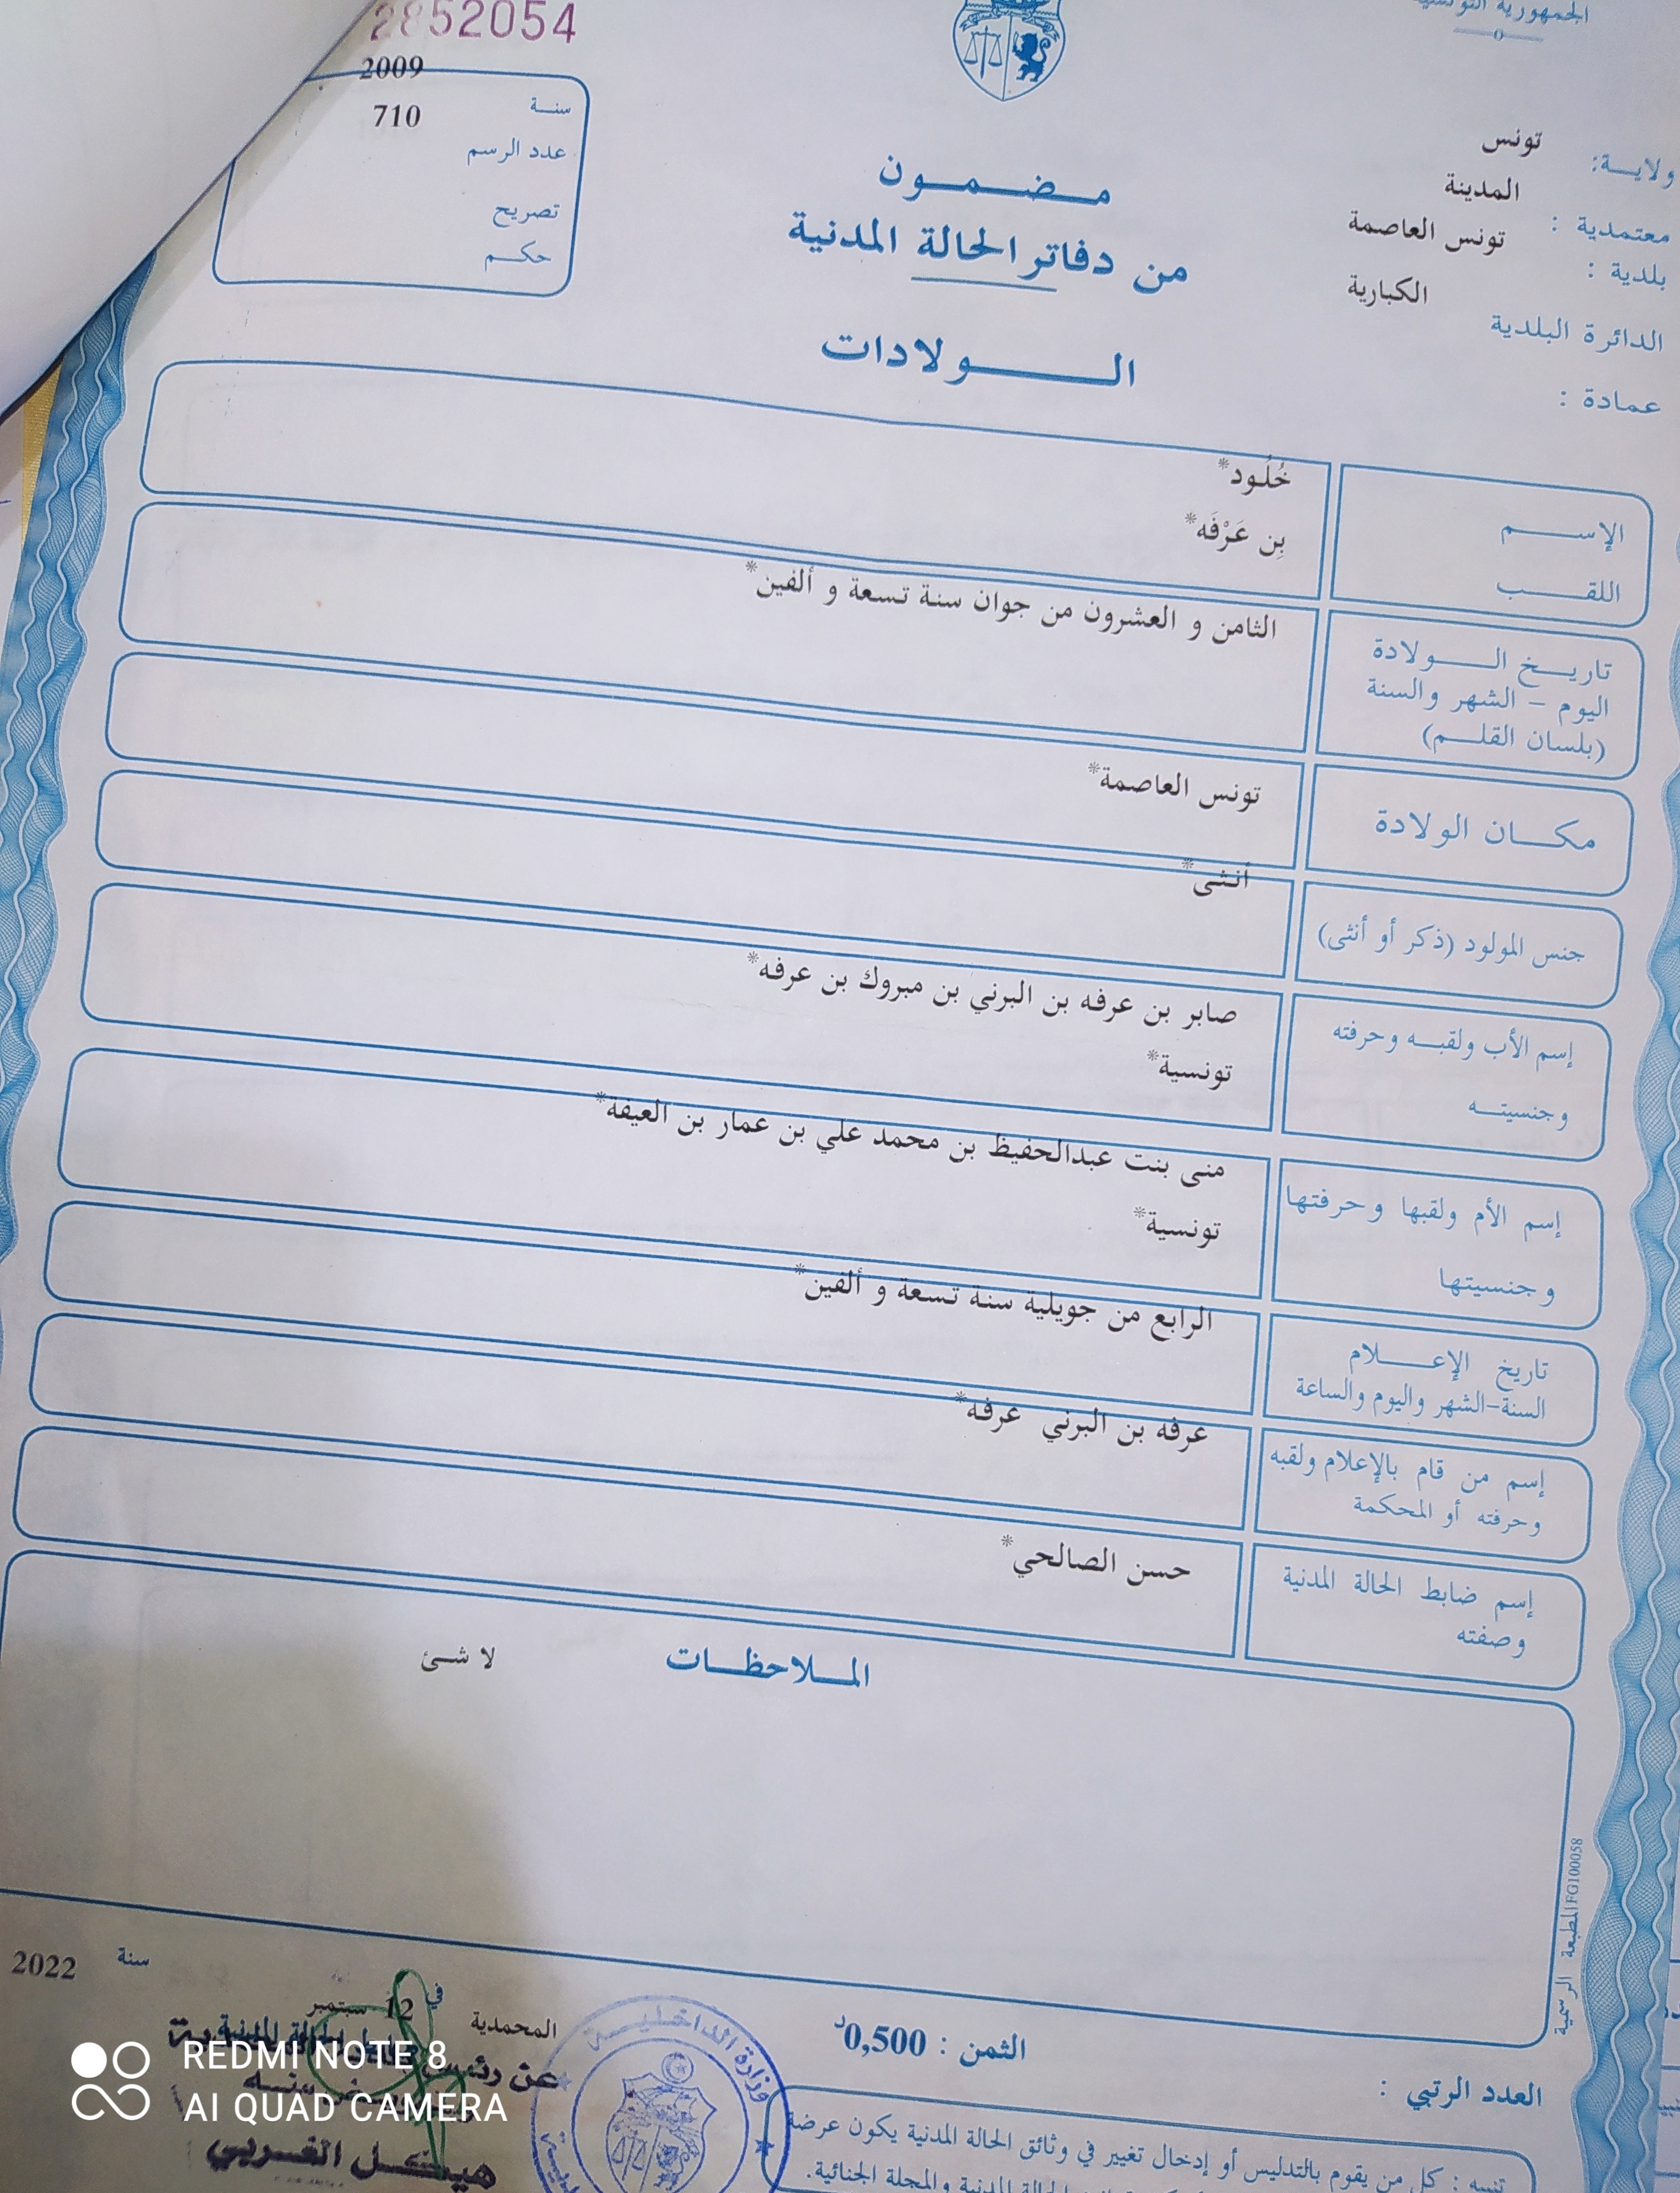 الجمهورية التونسية
2852054
ولايــة: تونس
معتمدية : المدينة
بلدية : تونس العاصمة
الدائرة البلدية الكبارية
عمادة :
سنــة 2009
عدد الرسم 710
تصريح
حكــم
مــضــمــون
من دفاتر الحالة المدنية
الــولادات
الإســـم خُلُود*
اللقـــب بِن عَرْفَه*
تاريــخ الــولادة الثامن و العشرون من جوان سنة تسعة و ألفين*
اليوم – الشهر والسنة
(بلسان القلــم)
مكــان الولادة تونس العاصمة*
جنس المولود (ذكر أو أنثى) أنثى*
إسم الأب ولقبــه وحرفته صابر بن عرفه بن البرني بن مبروك بن عرفه*
وجنسيتــه تونسية*
إسم الأم ولقبها وحرفتها منى بنت عبدالحفيظ بن محمد علي بن عمار بن العيفة*
وجنسيتها تونسية*
تاريخ الإعــلام الرابع من جويلية سنة تسعة و ألفين*
السنة-الشهر واليوم والساعة
إسم من قام بالإعلام ولقبه عرفه بن البرني عرفه*
وحرفته أو المحكمة
إسم ضابط الحالة المدنية حسن الصالحي*
وصفته
الملاحظــات لا شئ
المطبعة الرسمية FG100058
المحمدية في 12 سبتمبر سنة 2022
عن رئيس
هيكــل الغــربي
وزارة الداخليــة
الثمن : 0,500د
العدد الرتبي :
تنبيه : كل من يقوم بالتدليس أو إدخال تغيير في وثائق الحالة المدنية يكون عرضة
الحالة المدنية والمجلة الجنائية.
REDMI NOTE 8
AI QUAD CAMERA